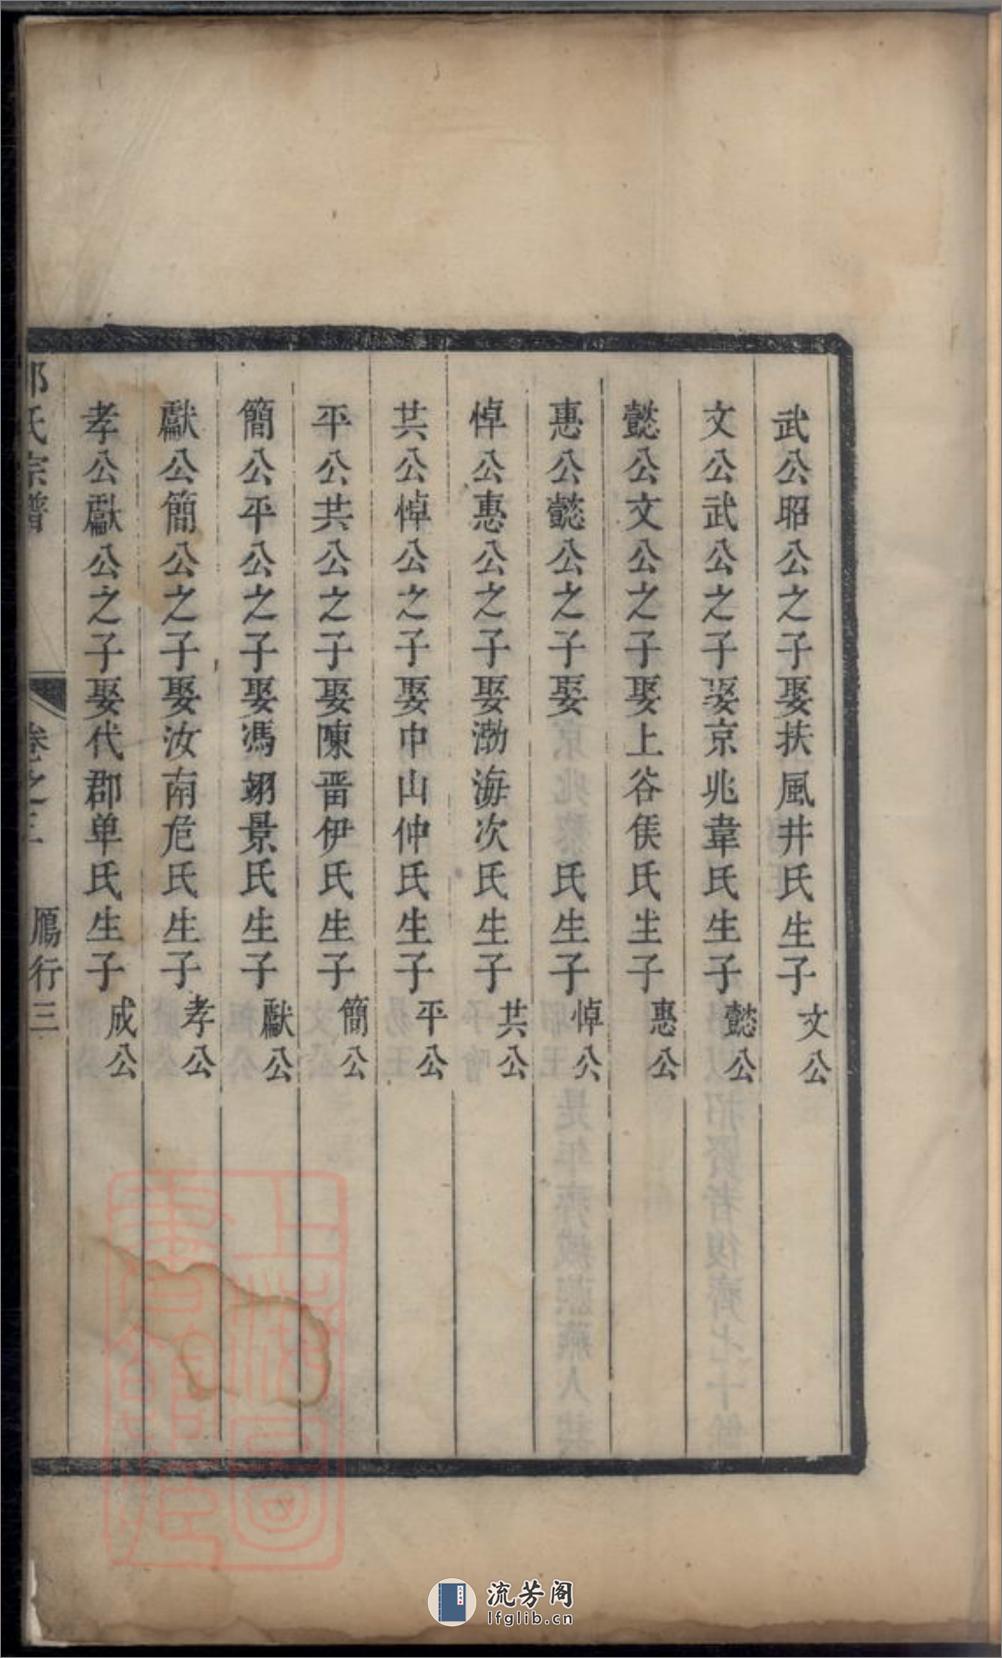 武公昭公之子娶扶風井氏生子文公
文公武公之子娶京兆韋氏生子懿公
懿公文公之子娶上谷侯氏生子惠公
惠公懿公之子娶　　　氏生子悼公
悼公惠公之子娶渤海次氏生子共公
共公悼公之子娶中山仲氏生子平公
平公共公之子娶陳晋伊氏生子簡公
簡公平公之子娶馮翊景氏生子獻公
獻公簡公之子娶汝南危氏生子孝公
孝公獻公之子娶代郡单氏生子成公
氏宗譜　卷之三　鴈行三
上海圖書館藏
流芳阁
lfglib.cn